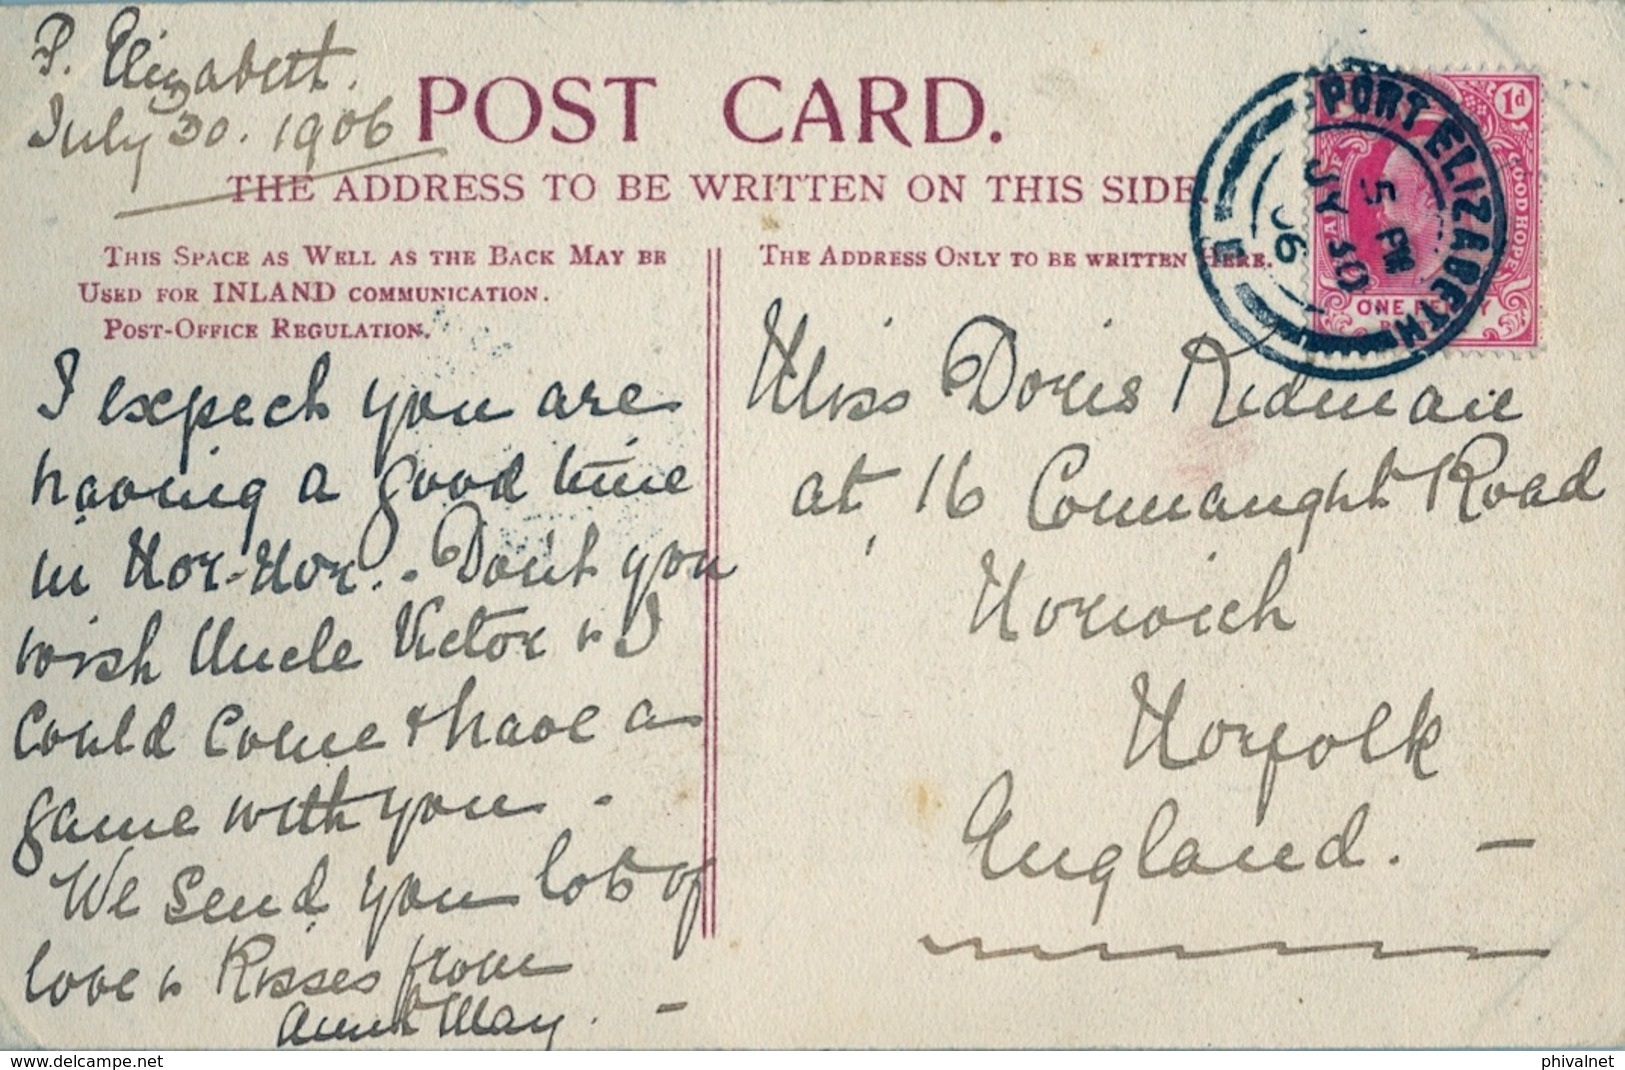 P. Elizabeth.
July 30. 1906
POST CARD.
THE ADDRESS TO BE WRITTEN ON THIS SIDE.
THIS SPACE AS WELL AS THE BACK MAY BE
USED FOR INLAND COMMUNICATION.
POST-OFFICE REGULATION.
I expect you are
having a good time
in Nor-Nor. - Don't you
wish Uncle Victor & I
Could Come & have a
game with you -
We Send you lots of
love & Kisses from
Aunt May. -
THE ADDRESS ONLY TO BE WRITTEN HERE.
Miss Doris Redman
at, 16 Connaught Road
Norwich
Norfolk
England. -
PORT ELIZABETH
5 PM
JY 30
06
1d
GOOD HOPE
ONE PENNY
delcampe.net
phivalnet